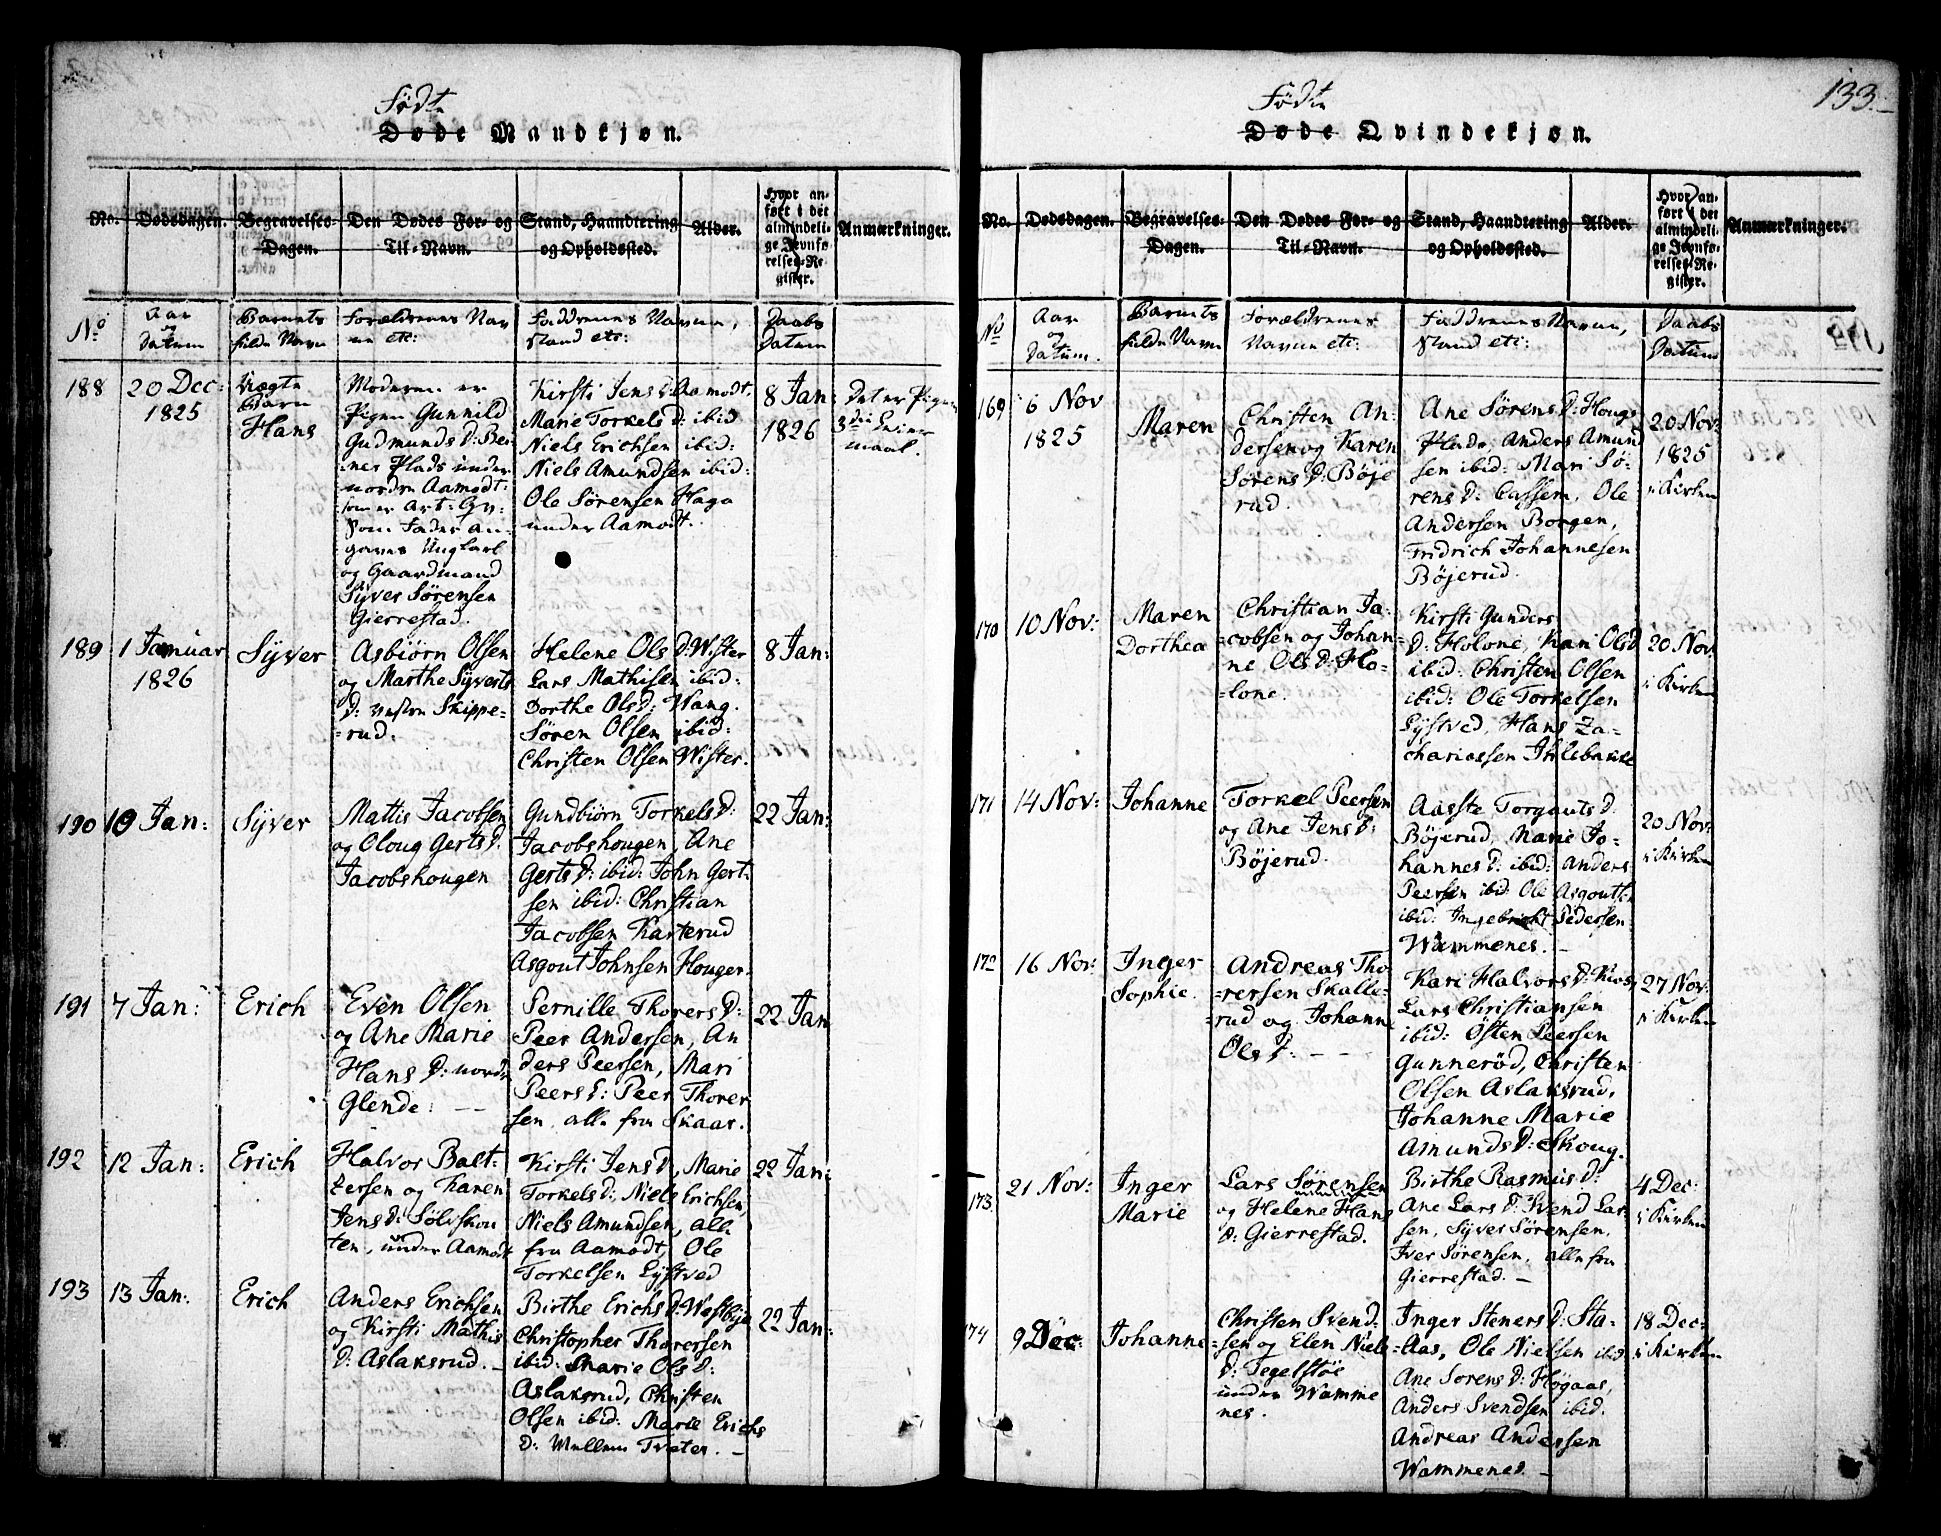 Fødte
Døde Mandkjøn.
No.
Dødsdagen.
Begravelses-
Dagen.
Den Dødes For- og
Til-Navn.
Stand, Haandtering
og Opholdssted.
Alder.
Hvor an-
ført i det
almindeli-
ge Jevnfø-
relses-Re-
gister.
Anmærkninger.
No
Aar
og
Datum
Barnets
fulde Navn
Forældrenes Nav
ne etc:
Faddrenes Navne,
stand etc:
Daabs
Datum
188
20 Dec:
1825
Uægte
Barn
Hans
Moderen er
Pigen Gunnild
Gudmunds D:
Plads under
nordre Aamodt:
som er
Som Fader an-
gaves Ungkarl
og Gaardmand
Syver Sørensen
Gierrestad.
Kirsti Jens D: Aamodt.
Marie Torkels D: ibid
Niels Erichsen ibid:
Niels Amundsen ibid:
Ole Sørensen Haga
under Aamodt.
8 Jan:
1826
Det er Pigen
3die Leier
maal.
189
1 Januar
1826
Syver
Asbiørn Olsen
og Marthe Syverts
D: vestre Skippe-
=rud.
Helene Ols D: Wister
Lars Mathisen ibid:
Dorthe Ols D: Wang.
Søren Olsen ibid:
Christen Olsen Wister.
8 Jan:
190
10 Jan:
Syver
Mattis Jacobsen
og Oloug Gerts D:
Jacobshougen
Gundbiørn Torkels D:
Jacobshougen, Ane
Gerts D: ibid: John Gert-
sen ibid: Christian
Jacobsen Karterud
Asgout Johnsen Houger.
22 Jan:
191
7 Jan:
Erich
Even Olsen
og Ane Marie
Hans D: nordre
Glende: — —
Pernille Thorers D:
Peer Andersen, An
ders Peersen, Mari
Peers D: Peer Thorer
sen, alle fra Skaar.
22 Jan
192
12 Jan:
Erich
Halvor Balt-
zersen og Karen
Jens D: Sølvskou
ten, under Aamodt
Kirsti Jens D, Marie
Torkels D: Niels Erichsen,
Niels Amundsen, alle
fra Aamodt, Ole
Torkelsen Lystved
22 Jan:
193
13 Jan:
Erich
Anders Erichsen
og Kirsti Mathis
D: Aslaksrud. —
Birthe Erichs D: Westbye
Christopher Thorersen
ibid: Marie Ols D:
Aslaksrud, Christen
Olsen ibid: Marie Erichs
D: Mellem Tveter. —
22 Jan:
133. —
Fødte
Døde Qvindekjøn.
No.
Dødsdagen.
Begravelses-
Dagen.
Den Dødes For- og
Til-Navn.
Stand, Haandtering
og Opholdssted.
Alder.
Hvor an-
ført i det
almindeli-
ge Jevnfø-
relses-Re-
gister.
Anmærkninger.
No
Aar
og
Datum.
Barnets
fulde Navn
Forældrenes
Navne etc:
Faddrenes Navne,
Stand etc:
Daabs
Datum
169
6 Nov
1825
Maren
Christen An-
dersen og Karen
Sørens D: Bøje
rud.
Ane Sørens D: Hougs
Anders Amund
sen ibid: Mari Sø-
rens D: Ole
Andersen Borgen,
Fridrich Johannesen
Bøjerud.
20 Nov:
1825
i Kirken
170
10 Nov:
Maren
Dorthea
Christian Ja-
=cobsen og Johan-
ne Ols D: Ho-
=lone.
Kirsti Gunders
D: Holone, Kari Ols D
ibid: Christen Olsen
ibid: Ole Torkelsen
Lystved, Hans Za-
chariassen
20 Nov.
i Kirken
171
14 Nov:
Johanne
Torkel Peersen
og Ane Jens D:
Bøjerud.
Aaste Torgauts D:
Bøjerud, Marie Jo-
hannes D: ibid: Anders
Peersen ibid: Ole Asgouts:
ibid: Ingebricht Pedersen
Wammenes. —
20 Nov:
i Kirken
172
16 Nov:
Inger
Sophie.
Andreas Tho
=rersen Skalle-
=rud og Johanne
Ols D: — —
Kari Halvors D:
Lars Christiansen
ibid: Østen Peersen
Gunnerød, Christen
Olsen Aslaksrud,
Johanne Marie
Amunds D: Skoug.
27 Nov:
i Kirken
173.
21 Nov:
Inger
Marie
Lars Sørensen
og Helene Hans
D: Gierrestad.
Birthe Rasmus D:
Ane Lars D: Svend Lar
sen, Syver Sørensen,
Iver Sørensen, alle fra
Gierrestad. —
4 Dec:
i Kirken
174
9 Dec:
Johanne
Christen Svend-
=sen og Elen Niels
D: Tegelstøe
under Wamme
nes.
Inger Steners D: Sta-
=Aas, Ole Nielsen ibid
Ane Sorens D: Høgaas,
Anders Svendsen ibid.
Andreas Andersen
Wammenes —
18 Dec:
i Kirken